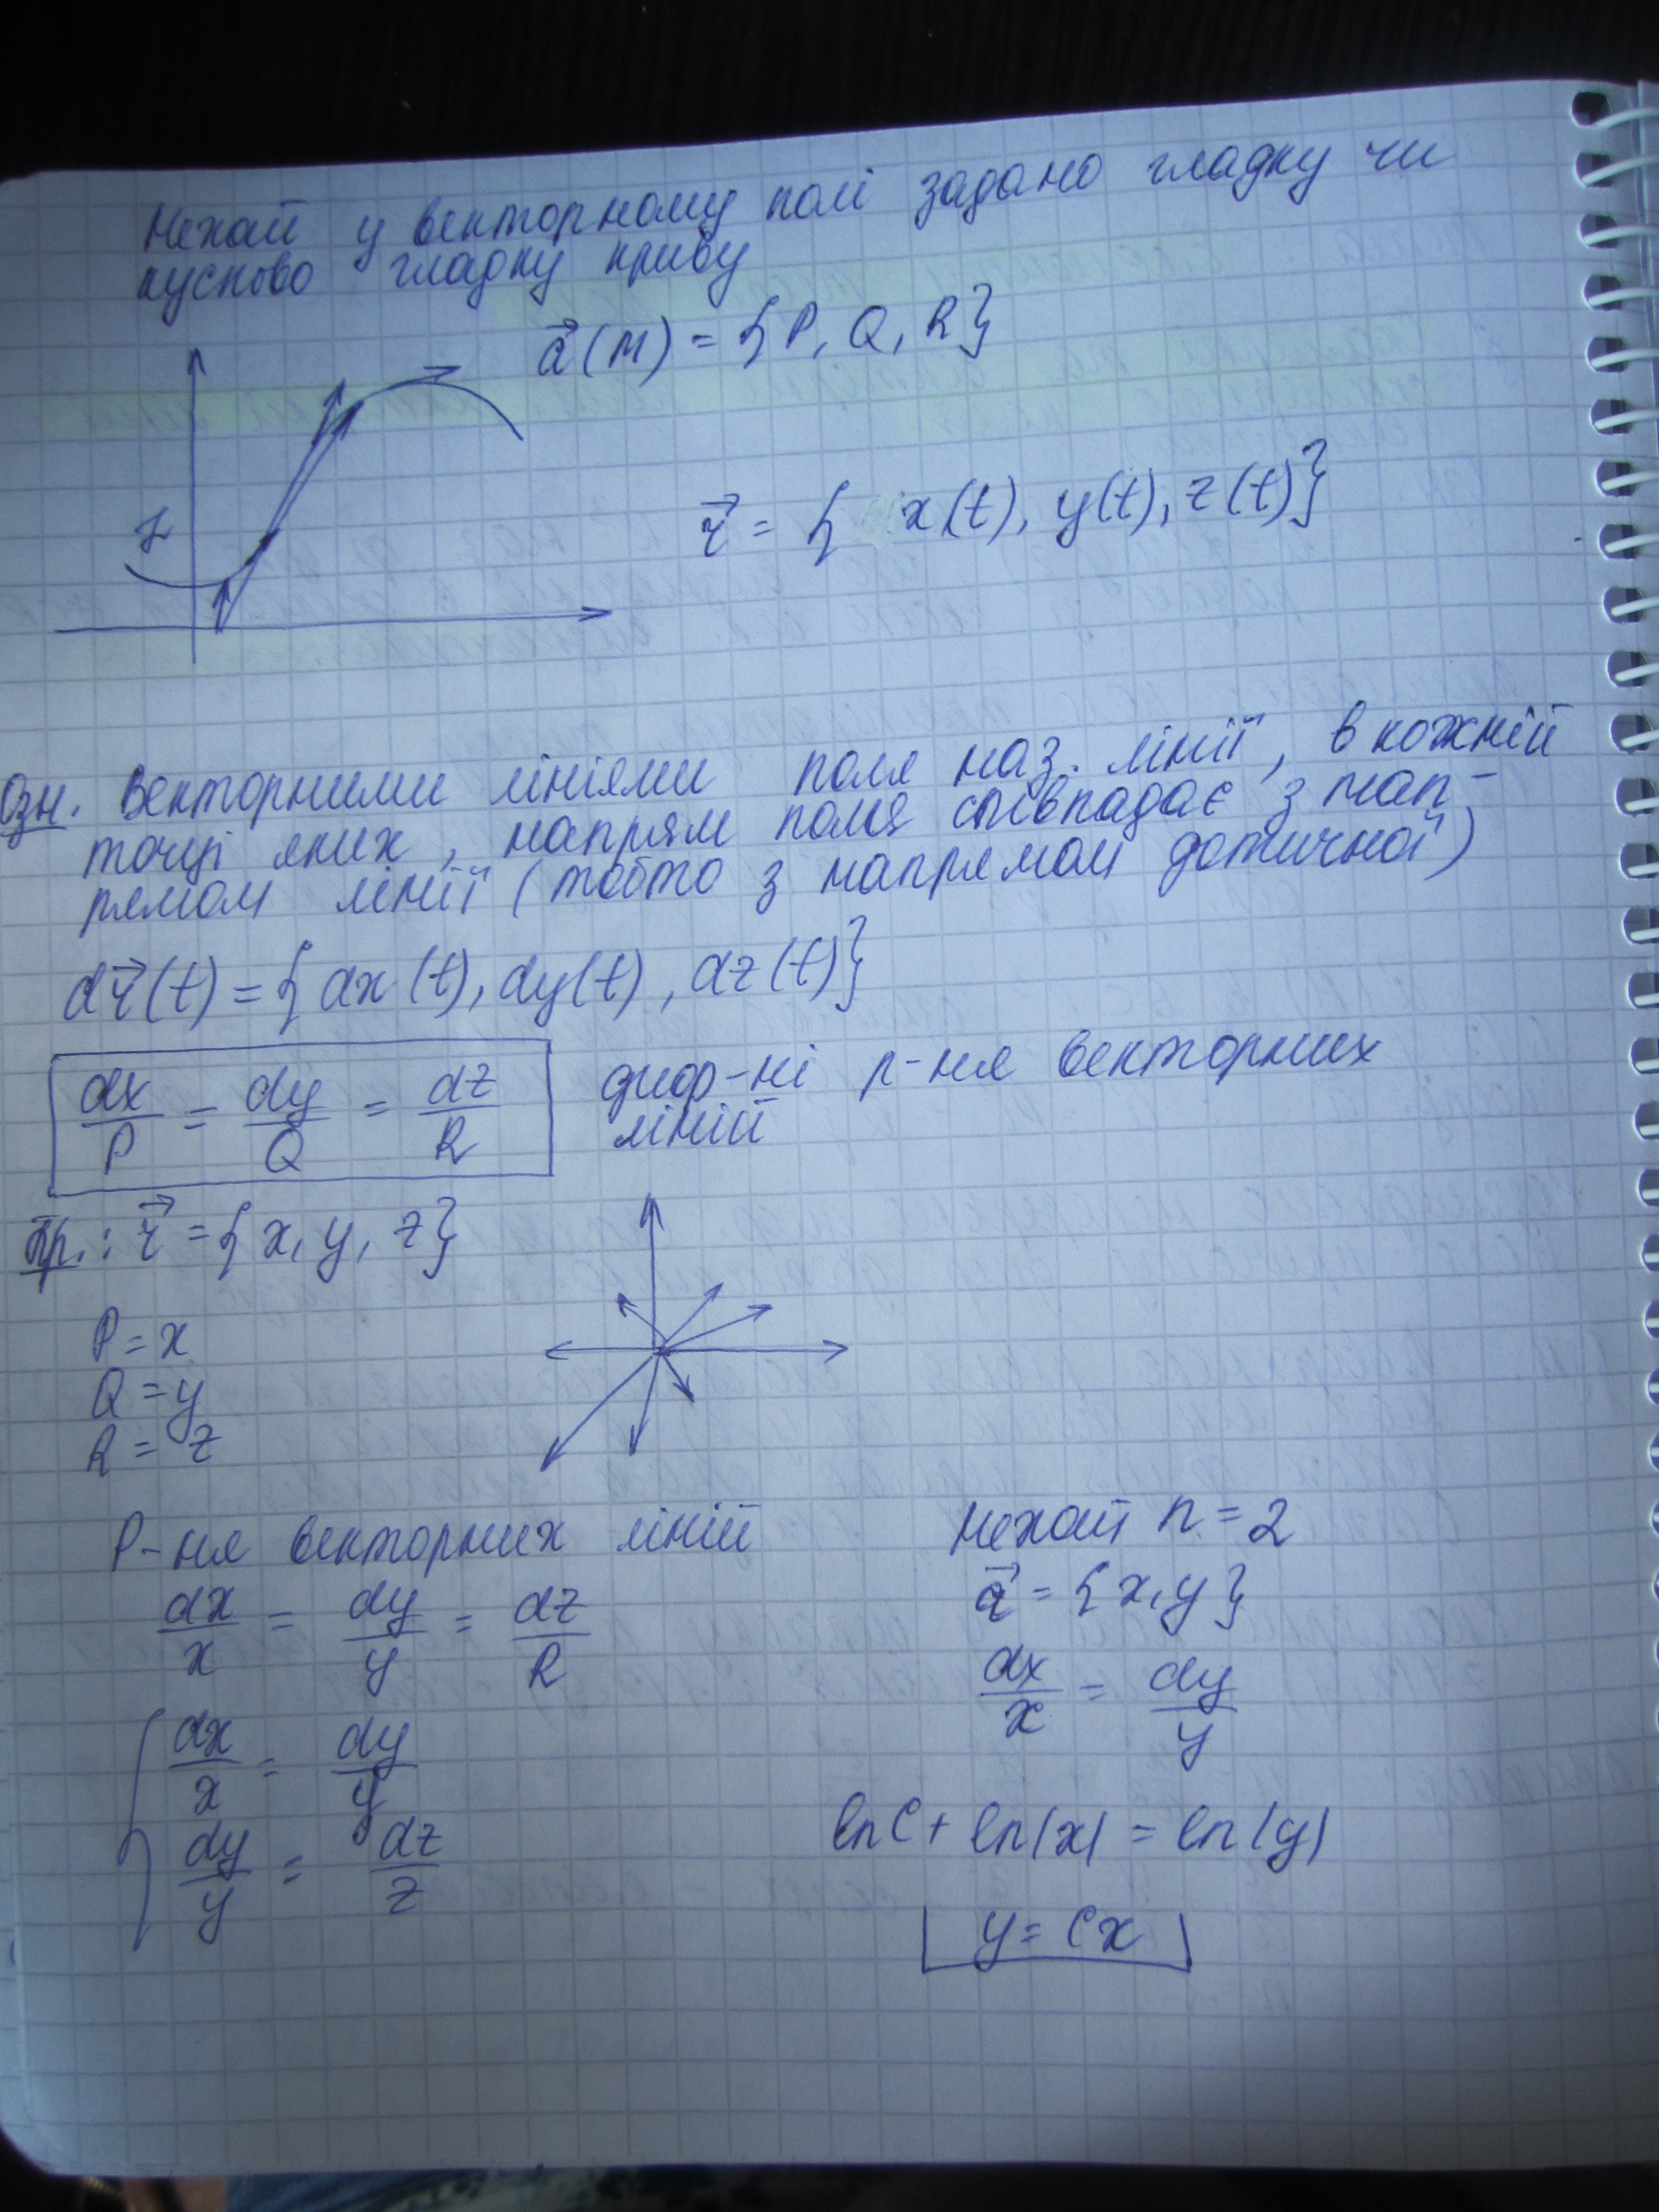 Нехай у векторному полі задано гладку чи
кусково гладку криву
a⃗(M) = {P, Q, R}
r⃗ = { x(t), y(t), z(t)}
Озн. Векторними лініями поля наз. лінії, в кожній
точці яких, напрям поля співпадає з нап-
рямом лінії (тобто з напрямом дотичної)
dr⃗(t) = {dx(t), dy(t), dz(t)}
dx/P = dy/Q = dz/R диф-ні р-ня векторних
ліній
Пр.: r⃗ = {x, y, z}
P = x
Q = y
R = z
Р-ня векторних ліній
dx/x = dy/y = dz/R
{ dx/x = dy/y
dy/y = dz/z
Нехай n = 2
a⃗ = {x, y}
dx/x = dy/y
ln C + ln|x| = ln|y|
y = Cx